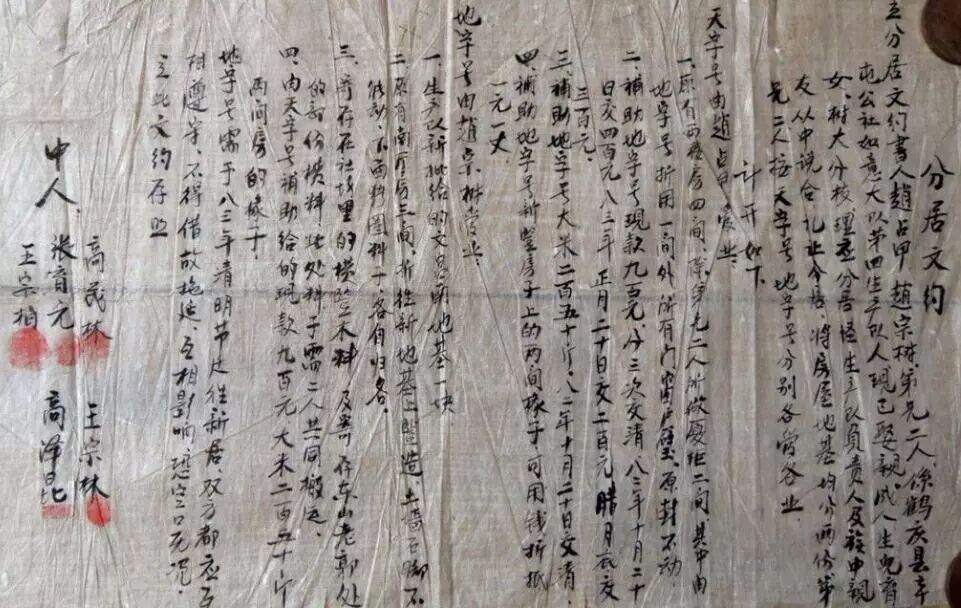 分居文约
立分居文约书人赵占甲、赵宗树弟兄二人,系鹤庆县辛
屯公社如意大队第四生产队人,现已娶亲,成人生儿育
女、树大分枝,理应分居,经生产队负责人及族中亲
友从中说合,礼让分居,将房屋地基均分两份,弟
兄二人按天字号、地字号分别各管各业
计开如下
天字号由赵占甲管业
一、原有西楼房四间、除弟兄二人所做二间,其中由
地字号折用一间外,所有门窗户壁、原封不动
二、补助地字号现款九百元,分三次交清,八二年十月二十
日交四百元,八三年正月二十日交二百元,腊月底交
三百元。
三、补助地字号大米二百五十斤,八二年十月二十日交清,
四、补助地字号新竖房子上的两间椽子,可用钱折抵
一元一丈
地字号由赵宗树管业。
一、生产队新批给的地基一块
二、原有南厅房三间,折往新地基上竖造,土墙石脚不
能动,东西猪圈料子,各自归各。
三、寄存在社 里的横竖木料,及寄存东山老郭处
的部份横料,此处料子需二人共同搬运
四、由天字号补助给的现款九百元,大米二百五十斤
两间房的椽子,
地字号需于八三年清明节迁往新居,双方都应了
相遵守,不得借故拖延、互相影响,恐空口无凭
立此文约存照
中人 高茂林 王宗林
张育元
王宗柏 高泽昆